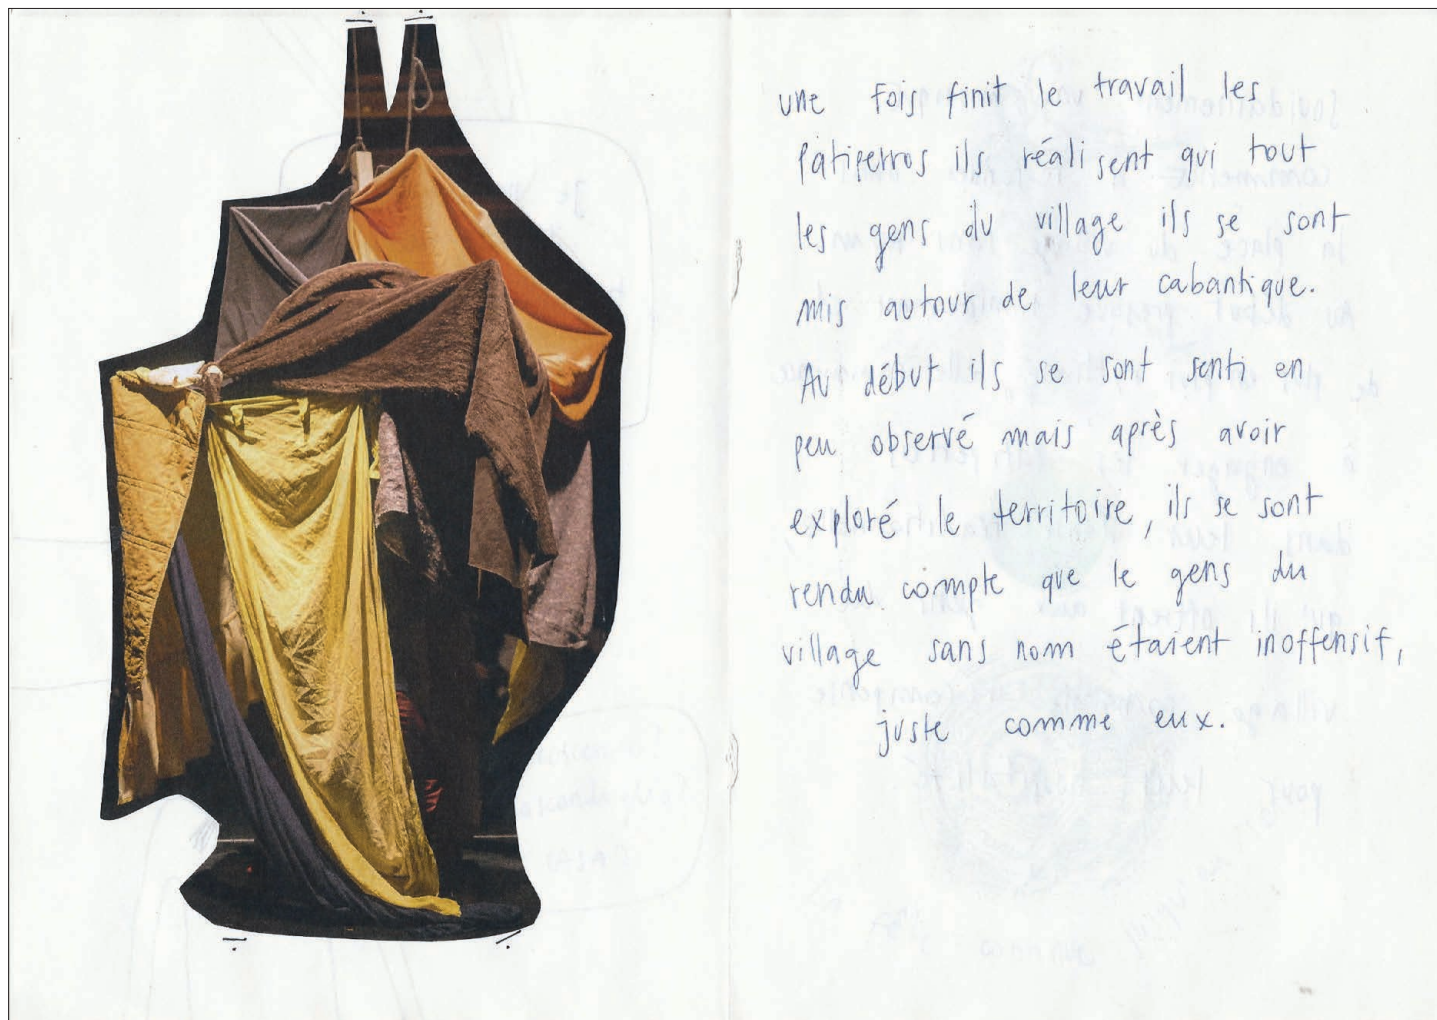 une fois finit le travail les
Patiperros ils réalisent qui tout
les gens du village ils se sont
mis autour de leur cabantique.
Au début ils se sont senti en
peu observé mais après avoir
exploré le territoire, ils se sont
rendu compte que le gens du
village sans nom étaient inoffensif,
juste comme eux.